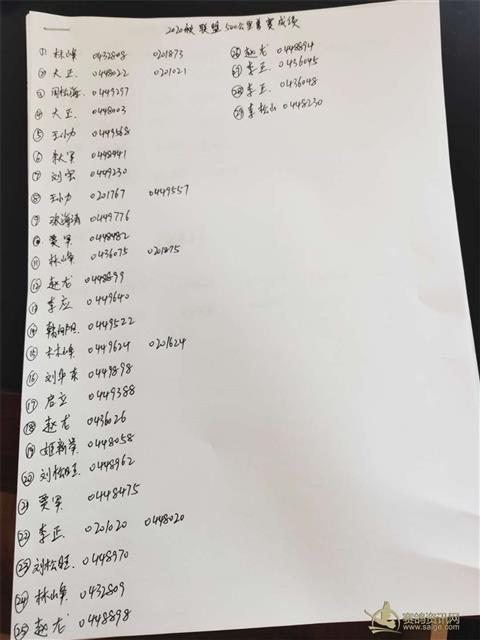 2020秋 联盟 500公里首赛成绩
① 林峰 0432808 0201873
② 大正 0448022 0201021
③ 周松海 0449297
④ 大正 0448003
⑤ 王小力 0449568
⑥ 军 0448441
⑦ 刘宏 0449230
⑧ 王小力 0201767 0449557
⑨ 海涛 0449776
⑩ 贾军 0448482
⑪ 林峰 0436075 0201875
⑫ 赵龙 0448899
⑬ 李应 0449640
⑭ 韩 0449522
⑮ 林峰 0449624 0201624
⑯ 刘华东 0449898
⑰ 启立 0449388
⑱ 赵龙 0436026
⑲ 姬新荣 0448058
⑳ 刘松旺 0448962
㉑ 贾军 0448475
㉒ 李正 0201020 0448020
㉓ 刘松旺 0448970
㉔ 林峰 0432809
㉕ 赵龙 0448898
㉖ 赵龙 0448894
㉗ 李正 0436045
㉘ 李正 0436048
㉙ 李松山 0448230
赛鸽资讯网
www.saige.com